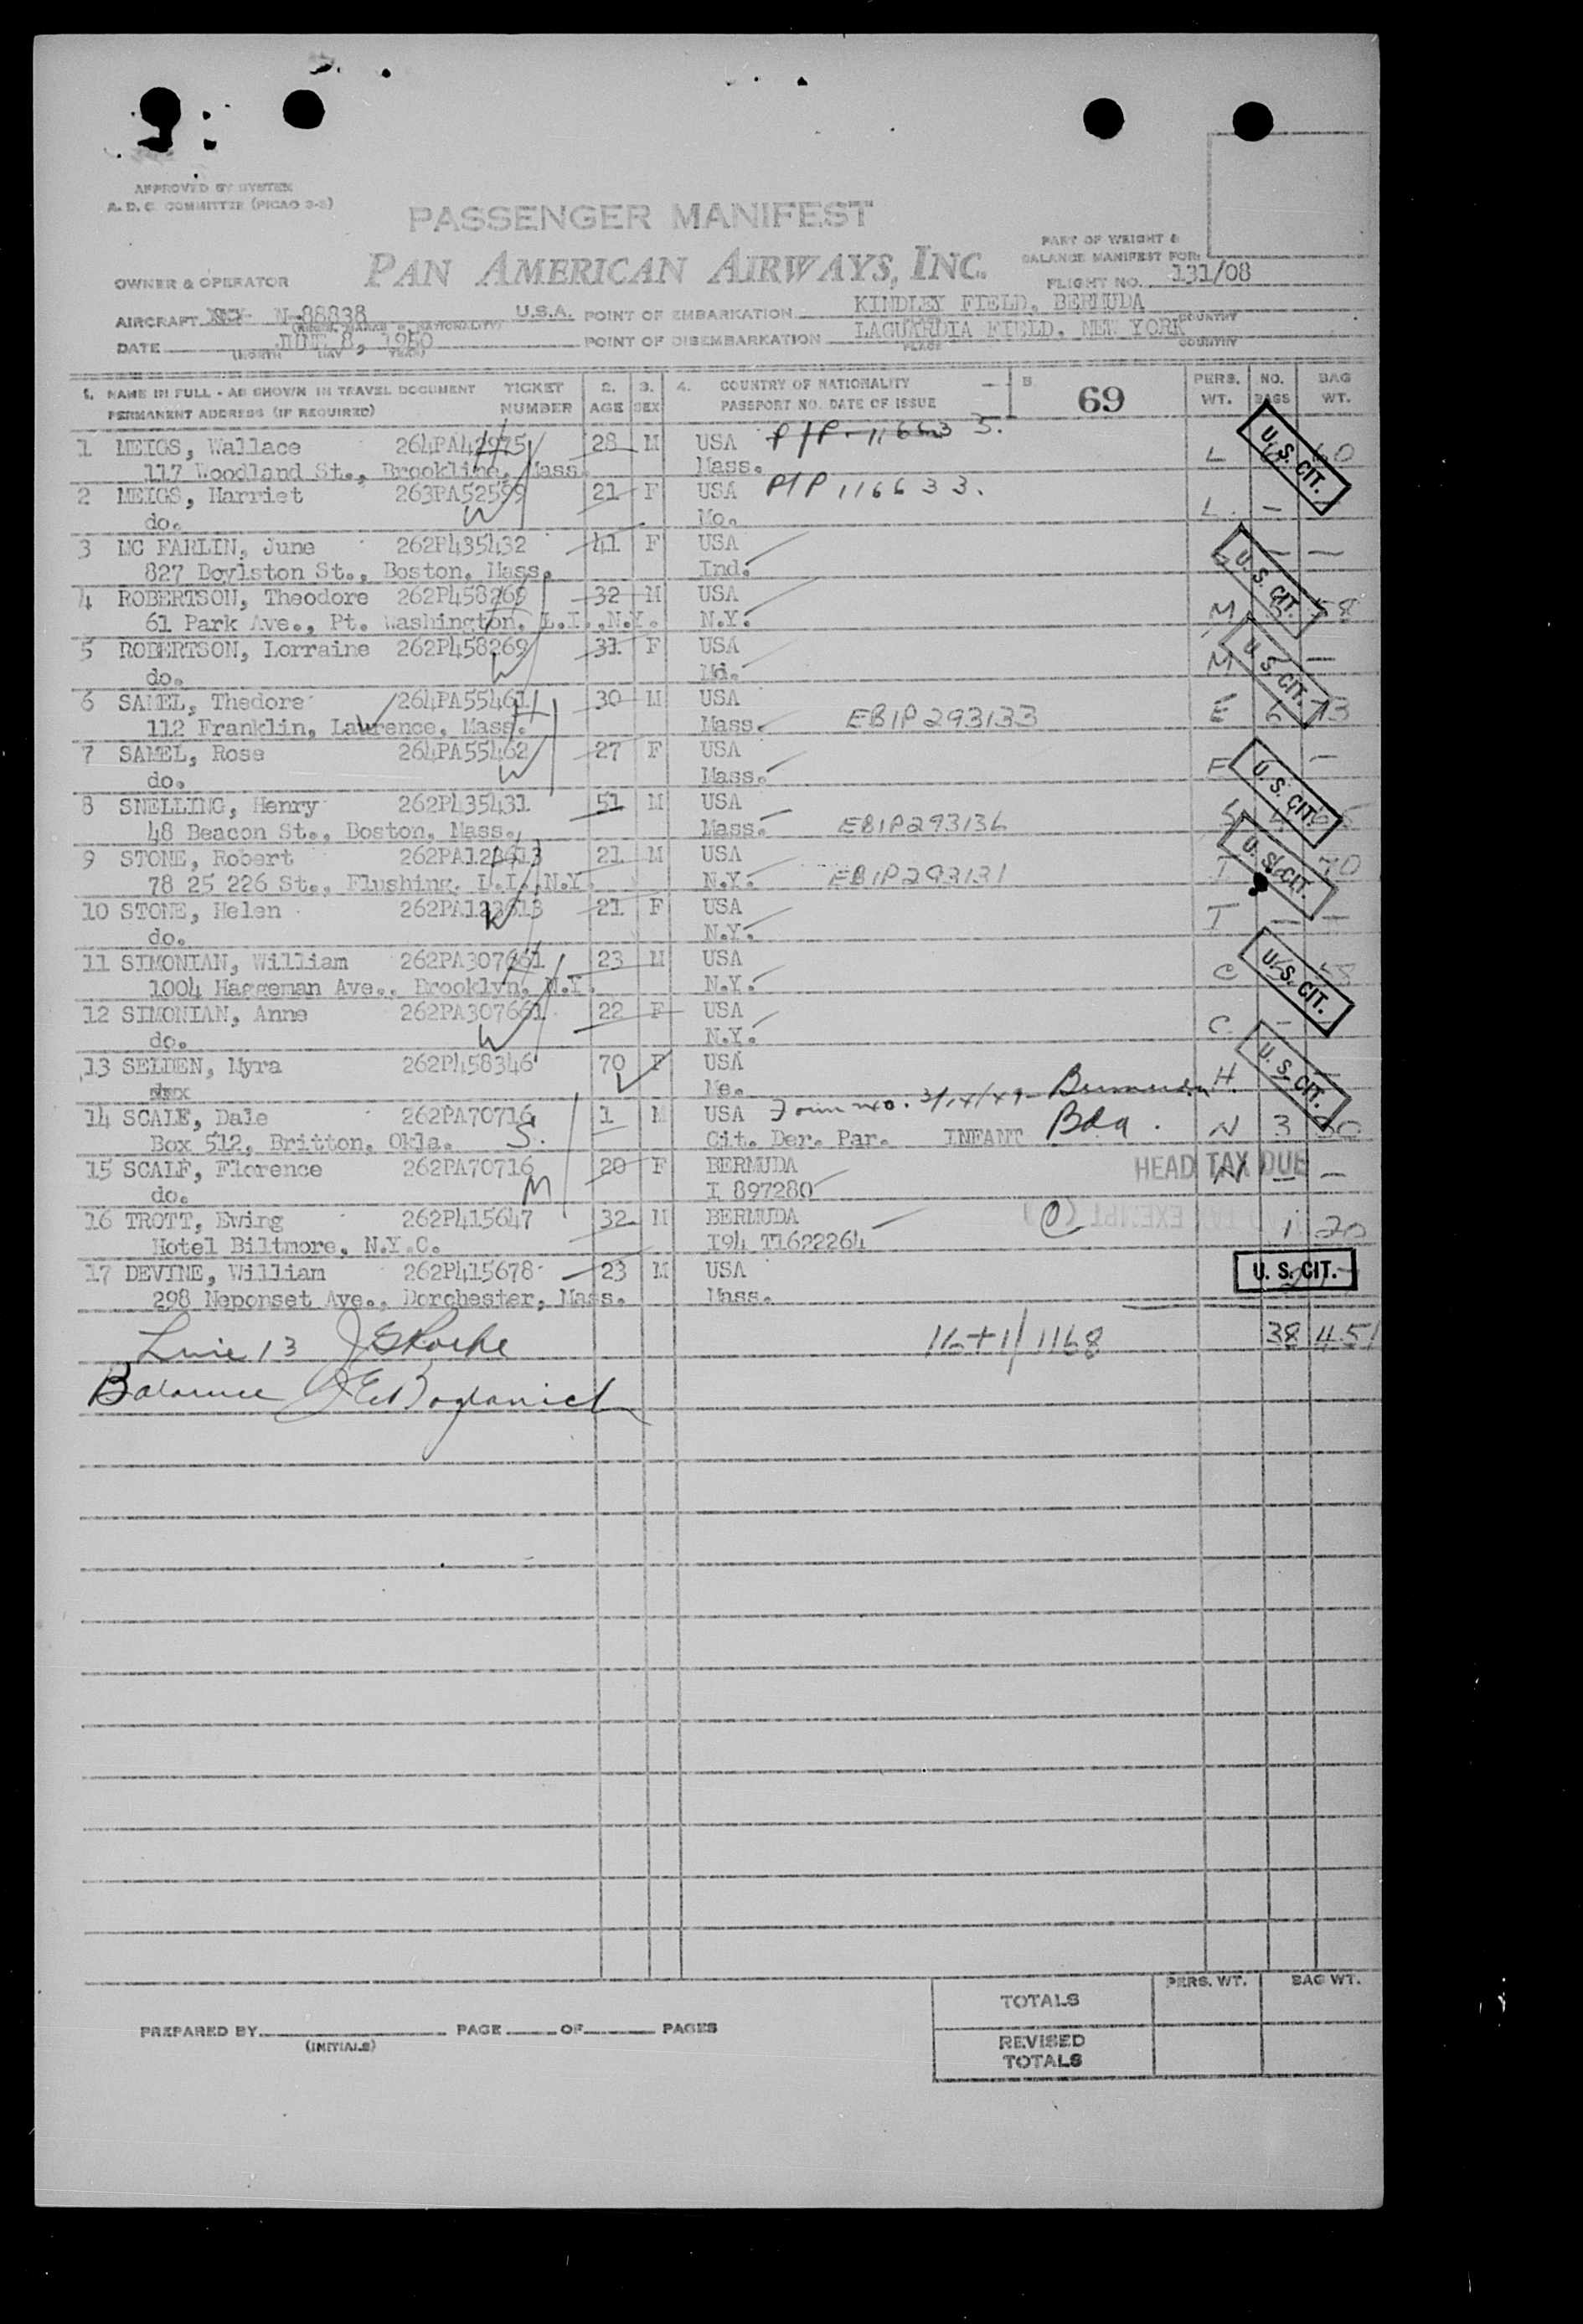 APPROVED BY SYSTEM
A. D. C. COMMITTEE (PICAO 3-3)
PASSENGER MANIFEST
PART OF WEIGHT &
BALANCE MANIFEST FOR:
OWNER & OPERATOR PAN AMERICAN AIRWAYS, INC.
FLIGHT NO. 131/08
AIRCRAFT N-88838 U.S.A. POINT OF EMBARKATION KINDLEY FIELD, BERMUDA
COUNTRY
DATE JUNE 8, 1950 POINT OF DISEMBARKATION LAGUARDIA FIELD, NEW YORK
(MONTH DAY YEAR) PLACE COUNTRY
1. NAME IN FULL - AS SHOWN IN TRAVEL DOCUMENT TICKET 2. 3. 4. COUNTRY OF NATIONALITY 5. 69 PERS. NO. BAG
PERMANENT ADDRESS (IF REQUIRED) NUMBER AGE SEX PASSPORT NO. DATE OF ISSUE WT. BAGS WT.
1 MEIGS, Wallace 264PA42975 28 M USA P/P-116633. U.S. CIT.
117 Woodland St., Brookline, Mass. Mass. L 60
2 MEIGS, Harriet 263PA52599 21 F USA P/P 116633.
do. Mo. L. —
3 MC FARLIN, June 262P435432 41 F USA — —
827 Boylston St., Boston, Mass. Ind. U.S. CIT.
4 ROBERTSON, Theodore 262P458269 32 M USA
61 Park Ave., Pt. Washington, L.I.,N.Y. N.Y. M 58
5 ROBERTSON, Lorraine 262P458269 31 F USA U.S. CIT.
do. Md. M —
6 SAMEL, Thedore 264PA55461 30 M USA
112 Franklin, Lawrence, Mass. Mass. EBIP293133 E 6 73
7 SAMEL, Rose 264PA55462 27 F USA
do. Mass. —
8 SNELLING, Henry 262P435431 51 M USA U.S. CIT.
48 Beacon St., Boston, Mass. Mass. EBIP293136
9 STONE, Robert 262PA123613 21 M USA U.S. CIT.
78 25 226 St., Flushing, L.I.,N.Y. N.Y. EBIP293131 I 70
10 STONE, Helen 262PA123613 21 F USA
do. N.Y. I — —
11 SIMONIAN, William 262PA307661 23 M USA U.S. CIT.
1004 Hageman Ave., Brooklyn, N.Y. N.Y. C 58
12 SIMONIAN, Anne 262PA307661 22 F USA
do. N.Y. C. —
13 SELDEN, Myra 262P458346 70 F USA U.S. CIT.
Me. H.
14 SCALF, Dale 262PA70716 1 M USA Form 240. 3/14/49 - Bermuda
Box 512, Britton, Okla. S. Cit. Der. Par. INFANT Bda. N 3 50
15 SCALF, Florence 262PA70716 20 F BERMUDA HEAD TAX DUE
do. M I 897280 —
16 TROTT, Ewing 262P415647 32 M BERMUDA
Hotel Biltmore, N.Y.C. I94 T1622264 1 20
17 DEVINE, William 262P415678 23 M USA U. S. CIT.
298 Neponset Ave., Dorchester, Mass. Mass.
Line 13 16+1/1168 38 451
Balance
PERS. WT. BAG WT.
TOTALS
PREPARED BY PAGE OF PAGES
(INITIALS)
REVISED
TOTALS